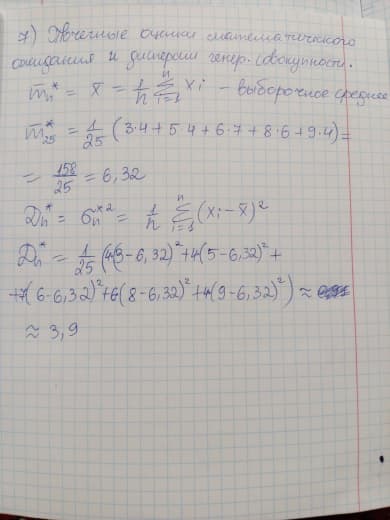 7) Точечные оценки математического
ожидания и дисперсии генер. совокупности.
m̄ₙ* = x̄ = 1/n ∑ᵢ₌₁ⁿ xᵢ – выборочное среднее
m̄₂₅* = 1/25 (3·4 + 5·4 + 6·7 + 8·6 + 9·4) =
= 158/25 = 6,32
Dₙ* = σₙ*² = 1/n ∑ᵢ₌₁ⁿ (xᵢ – x̄)²
Dₙ* = 1/25 (4(3–6,32)² + 4(5–6,32)² +
+7(6–6,32)² + 6(8–6,32)² + 4(9–6,32)²) ≈
≈ 3,9